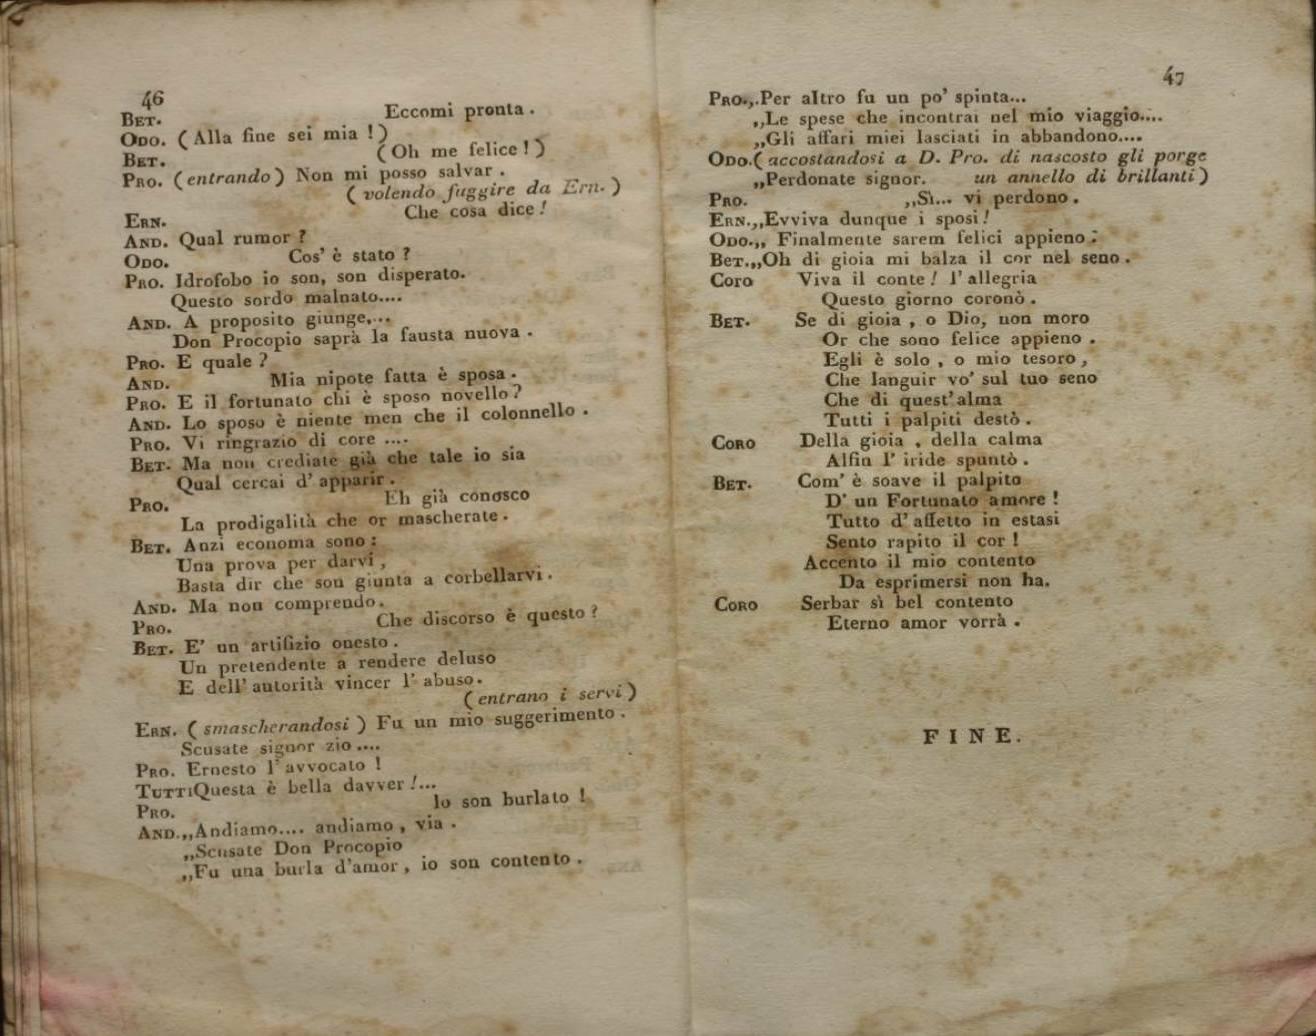 46
BET. Eccomi pronta .
ODO. ( Alla fine sei mia ! )
BET. ( Oh me felice ! )
PRO. ( entrando ) Non mi posso salvar .
( volendo fuggire da Ern. )
ERN. Che cosa dice !
AND. Qual rumor ?
ODO. Cos' è stato ?
PRO. Idrofobo io son, son disperato.
Questo sordo malnato....
AND. A proposito giunge,...
Don Procopio saprà la fausta nuova .
PRO. E quale ?
AND. Mia nipote fatta è sposa .
PRO. E il fortunato chi è sposo novello ?
AND. Lo sposo è niente men che il colonnello .
PRO. Vi ringrazio di core ....
BET. Ma non crediate già che tale io sia
Qual cercai d' apparir .
PRO. Eh già conosco
La prodigalità che or mascherate .
BET. Anzi economa sono :
Una prova per darvi ,
Basta dir che son giunta a corbellarvi .
AND. Ma non comprendo.
PRO. Che discorso è questo ?
BET. E' un artifizio onesto .
Un pretendente a rendere deluso
E dell' autorità vincer l' abuso.
( entrano i servi )
ERN. ( smascherandosi ) Fu un mio suggerimento .
Scusate signor zio ....
PRO. Ernesto l' avvocato !
TUTTI Questa è bella davver !...
PRO. Io son burlato !
AND.,,Andiamo.... andiamo , via .
,,Scusate Don Procopio
,,Fu una burla d'amor , io son contento .
47
PRO.,.Per altro fu un po' spinta...
,,Le spese che incontrai nel mio viaggio....
,,Gli affari miei lasciati in abbandono....
ODO.( accostandosi a D. Pro. di nascosto gli porge
,,Perdonate signor. un annello di brillanti )
PRO. ,,Sì... vi perdono .
ERN.,,Evviva dunque i sposi !
ODO.,, Finalmente sarem felici appieno :
BET.,,Oh di gioia mi balza il cor nel seno .
CORO Viva il conte ! l' allegria
Questo giorno coronò .
BET. Se di gioia , o Dio, non moro
Or che sono felice appieno .
Egli è solo , o mio tesoro ,
Che languir vo' sul tuo seno
Che di quest' alma
Tutti i palpiti destò .
CORO Della gioia , della calma
Alfin l' iride spuntò .
BET. Com' è soave il palpito
D' un Fortunato amore !
Tutto d' affetto in estasi
Sento rapito il cor !
Accento il mio contento
Da esprimersi non ha.
CORO Serbar sì bel contento
Eterno amor vorrà .
FINE.